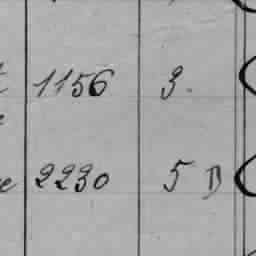 1156 3.
2230 5 B